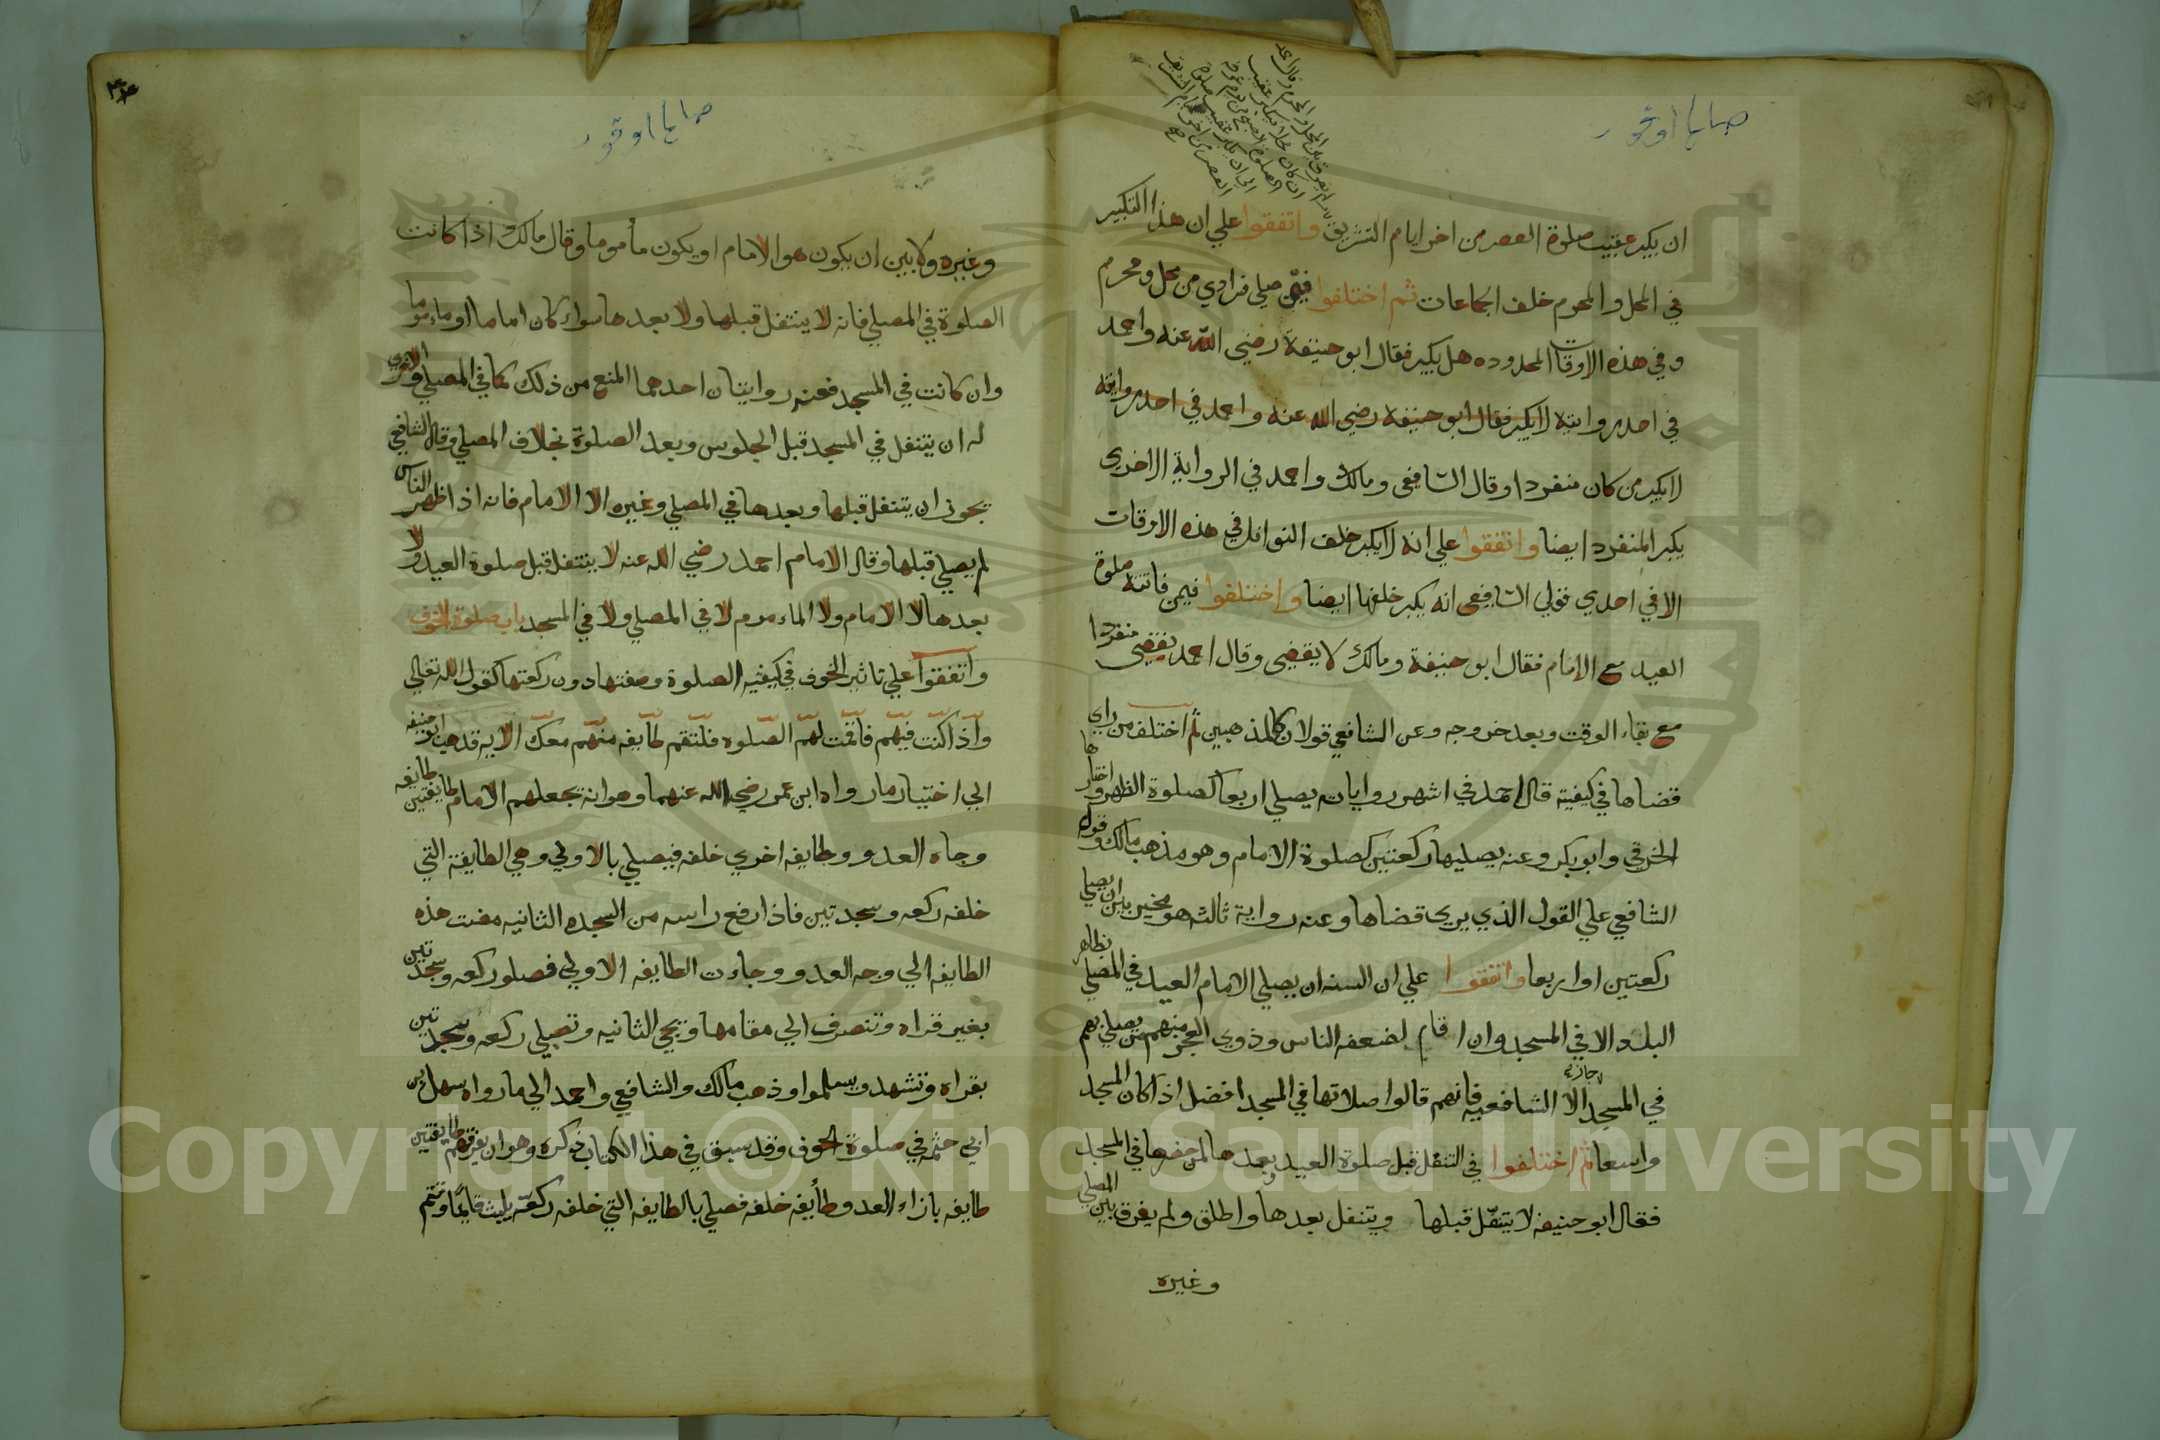 ان يكبر عقيب صلوة العصر من اخر ايام التشريق واتفقوا علي ان هذا التكبير
في المحل والمحرم خلف الجماعات ثم اختلفوا فيمن صلي فرادي من محل ومحرم
وفي هذه الاوقات المحدوده هل يكبر فقال ابو حنيفة رضي الله عنه واحمد
في احدي روايتيه لا يكبر فقال ابو حنيفة رضي الله عنه واحمد في احدي روايتيه
لا يكبر من كان منفردا وقال الشافعي ومالك واحمد في الرواية الاخري
يكبر المنفرد ايضا واتفقوا علي انه لا يكبر خلف النوافل في هذه الاوقات
الا في احدي قولي الشافعي انه يكبر خلفها ايضا واختلفوا فيمن فاتته صلوة
العيد مع الامام فقال ابو حنيفة ومالك لا يقضي وقال احمد يقضي منفردا
مع بقاء الوقت وبعد خروجه وعن الشافعي قولان كالمذهبين ثم اختلف من راي
قضاها في كيفيته قال احمد في اشهر روايات يصلي اربعا كصلوة الظهر واختارها
الخرقي وابو بكر وعنه يصليها ركعتين كصلوة الامام وهو مذهب مالك وقول
الشافعي علي القول الذي يري قضاها وعنه رواية ثالثه هو مخير بين ان يصلي
ركعتين او اربعا واتفقوا علي ان السنه ان يصلي الامام العيد في المصلي بظاهر
البلد لا في المسجد وان اقام لضعفه الناس وذوي العجز منهم من يصلي بهم
في المسجد جاز الا الشافعيه فانهم قالوا صلاتها في المسجد افضل اذا كان المسجد
واسعا ثم اختلفوا في التنفل قبل صلوة العيد وبعدها لمن حضرها في المسجد
فقال ابو حنيفه لا يتنفل قبلها ويتنفل بعدها واطلق ولم يفرق بين المصلي
وغيره
وغيره ولا بين ان يكون هو الامام او يكون مأموما وقال مالك اذا كانت
الصلوة في المصلي فانه لا يتنفل قبلها ولا بعدها سواء كان اماما او ماموما
وان كانت في المسجد فعنه روايتان احدهما المنع من ذلك كما في المصلي والاخري
له ان يتنفل في المسجد قبل الجلوس وبعد الصلوة بخلاف المصلي وقال الشافعي
يجوز ان يتنفل قبلها وبعدها في المصلي وغيره الا الامام فانه اذا ظهر الناس
لم يصلي قبلها وقال الامام احمد رضي الله عنه لا يتنفل قبل صلوة العيد ولا
بعدها لا الامام ولا الماءموم لا في المصلي ولا في المسجد باب صلوة الخوف
واتفقوا علي تاثير الخوف في كيفيه الصلوة وصفتها دون ركعتها كقول الله تعالي
واذا كنت فيهم فاقمت لهم الصلوه فلتقم طايفه منهم معك الايه قد هب ابو حنيفه
الي اختيار ما رواه ابن عمر رضي الله عنهما وهو انه يجعلهم الامام طايفتين طايفه
وجاه العدو وطايفه اخري خلفه فيصلي بالاولي وهي الطايفة التي
خلفه ركعه وسجدتين فاذا رفع راسه من السجده الثانيه مضت هذه
الطايفه الي وجه العدو وجاءت الطايفه الاولي فصلو ركعه وسجدتين
بغير قراه وتنصرف الي مقامها ويجي الثانيه وتصلي ركعه وسجدتين
بقراه وتشهد ويسلموا وذهب مالك والشافعي واحمد الي ما رواه سهل بن
ابي حثمه في صلوة الخوف وقد سبق في هذا الكتاب ذكره وهو ان يفرقهم طايفتين
طايفه بازاء العدو وطأيفه خلفه فصلي بالطايفه التي خلفه ركعه يلبث قايما وتتم
Copyright © King Saud University